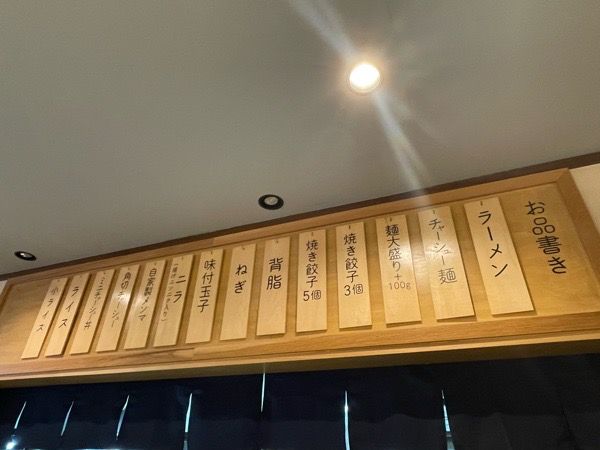 お品書き
ラーメン
チャーシュー麺
麺大盛り+100g
焼き餃子3個
焼き餃子5個
背脂
ねぎ
味付玉子
ニラ
自家製メンマ
角切チャーシュー
ミニチャーシュー丼
ライス
小ライス